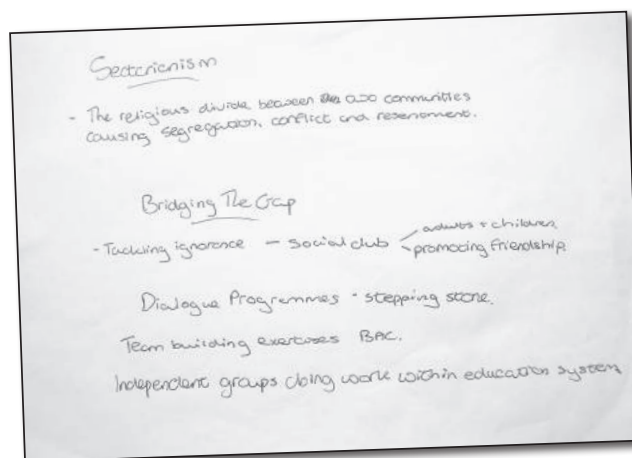 Sectarianism
- The religious divide between two communities
causing segregation, conflict and resentment.
Bridging The Gap
- Tackling ignorance - social club adults + children.
promoting friendship.
Dialogue Programmes - stepping stone.
Team building exercises BAC.
Independent groups doing work within education system